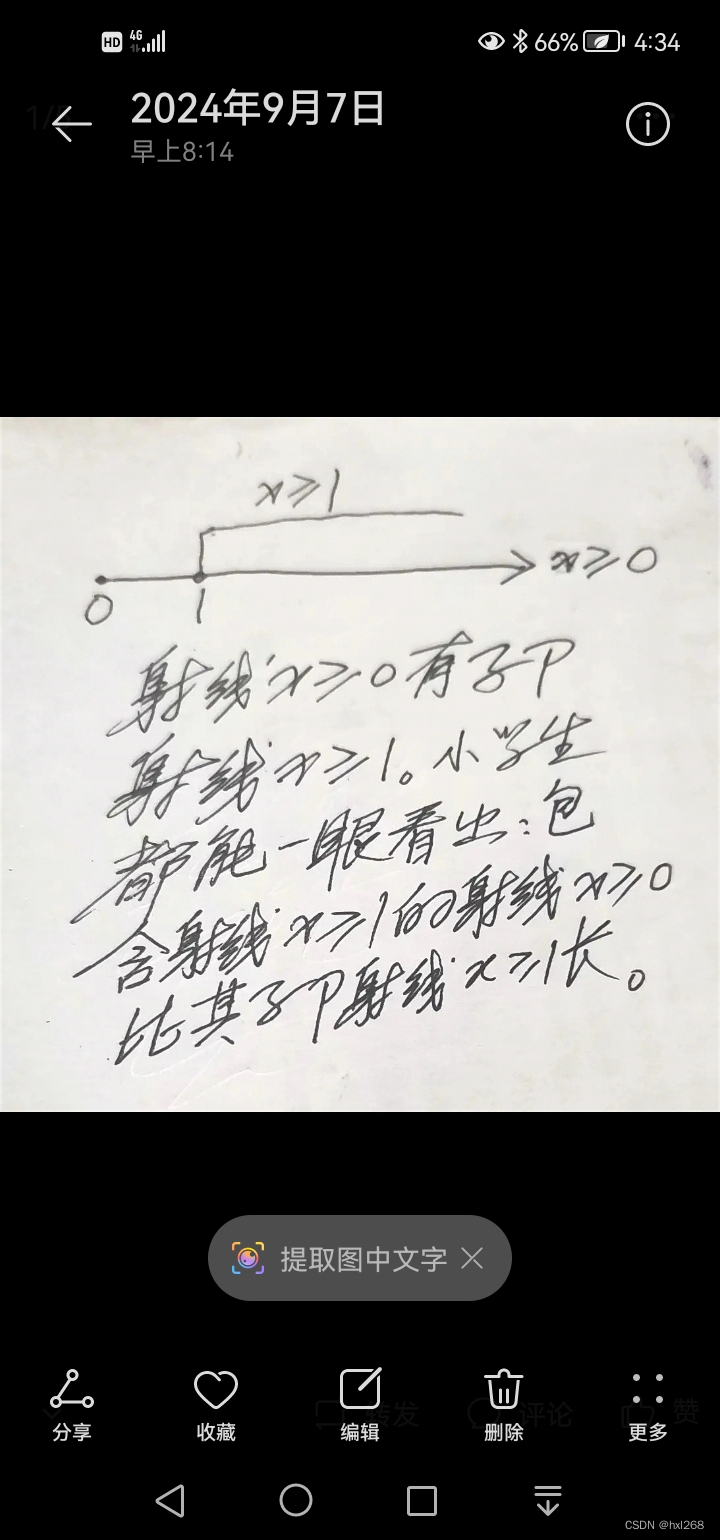 HD 4G 66% 4:34
2024年9月7日
早上8:14
x≥1
x≥0
0 1
射线x≥0有子P
射线x≥1。小学生
都能一眼看出:包
含射线x≥1的射线x≥0
比其子P射线x≥1长。
提取图中文字
分享 收藏 编辑 删除 更多
转发 评论 赞
CSDN @hxl268